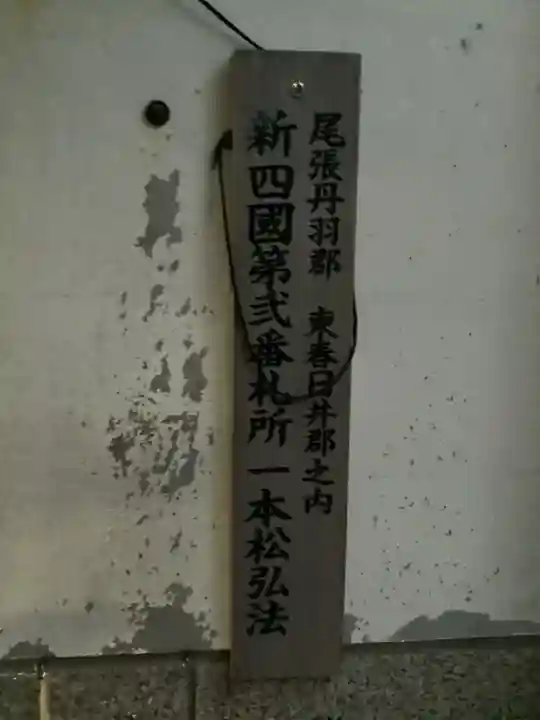 尾張丹羽郡 東春日井郡之内
新四國第弐番札所一本松弘法